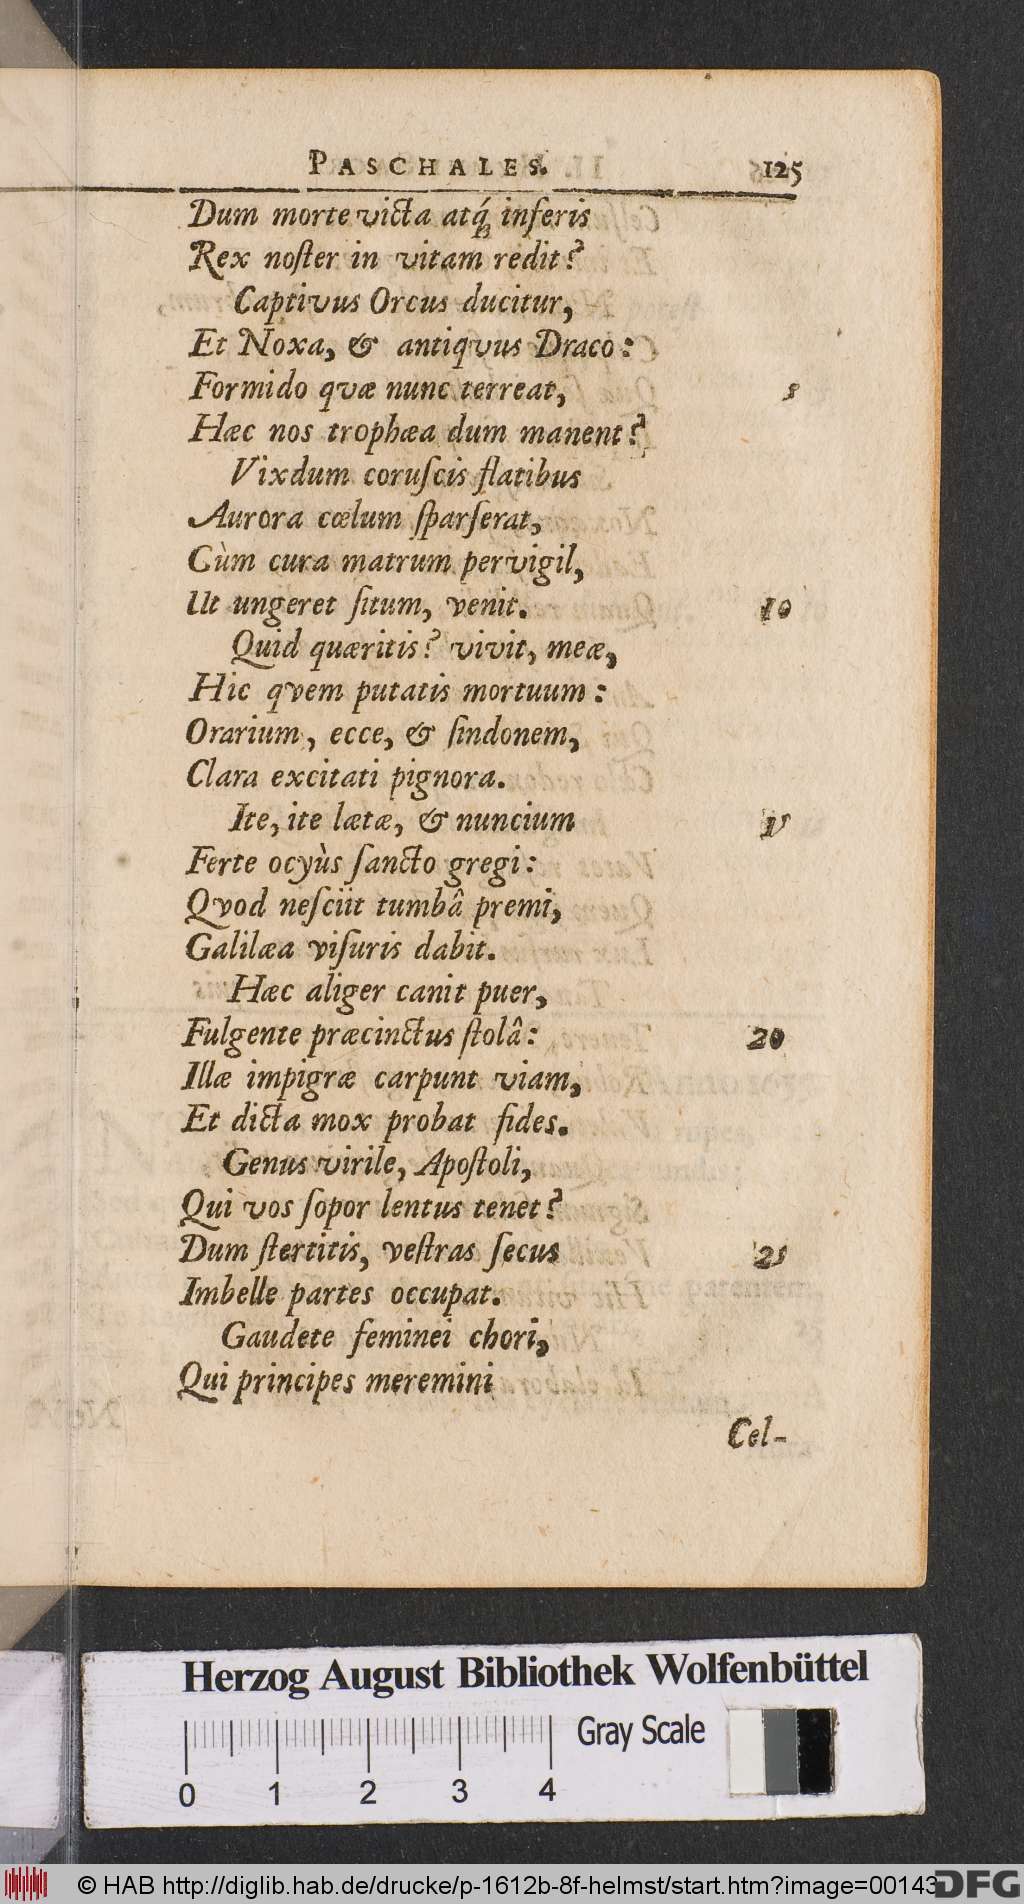 PASCHALES. 125
Dum morte victa atq́; inferis
Rex noſter in vitam redit?
Captivus Orcus ducitur,
Et Noxa, & antiqvus Draco:
Formido qvæ nunc terreat, 5
Hæc nos trophæa dum manent?
Vixdum coruſcis flatibus
Aurora cœlum ſparſerat,
Cùm cura matrum pervigil,
Ut ungeret ſitum, venit. 10
Quid quæritis? vivit, meæ,
Hic qvem putatis mortuum:
Orarium, ecce, & ſindonem,
Clara excitati pignora.
Ite, ite lætæ, & nuncium 1V
Ferte ocyùs ſancto gregi:
Qvod neſciit tumbâ premi,
Galilæa viſuris dabit.
Hæc aliger canit puer,
Fulgente præcinctus ſtolâ: 20
Illæ impigræ carpunt viam,
Et dicta mox probat fides.
Genus virile, Apoſtoli,
Qui vos ſopor lentus tenet?
Dum ſtertitis, veſtras ſecus 25
Imbelle partes occupat.
Gaudete feminei chori,
Qui principes meremini
Cel-
Herzog August Bibliothek Wolfenbüttel
Gray Scale
0 1 2 3 4
© HAB http://diglib.hab.de/drucke/p-1612b-8f-helmst/start.htm?image=00143
DFG